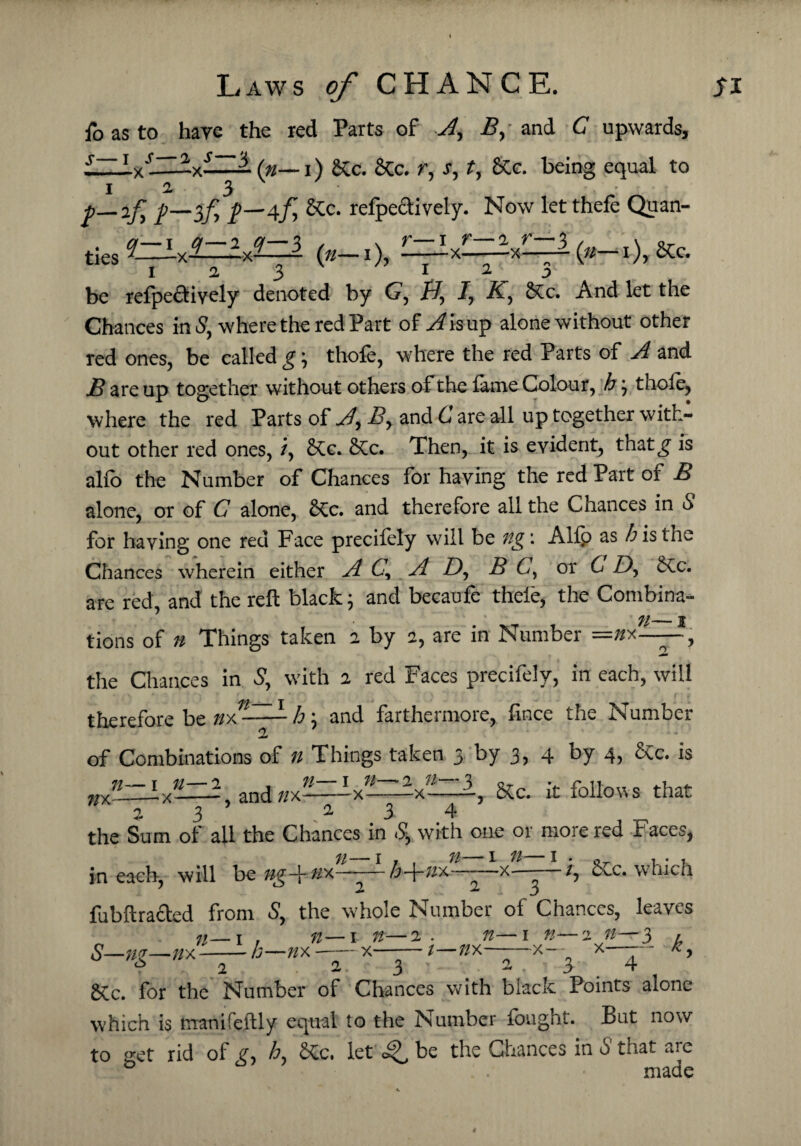 Laws of CHANCE. 51
ſo as to have the red Parts of A, B, and C upwards,
\frac{s—1}{1}×\frac{s—2}{2}×\frac{s—3}{3} (n—1) &c. &c. r, s, t, &c. being equal to
p—2f, p—3f, p—4f, &c. reſpectively. Now let theſe Quan-
ties \frac{q—1}{1}×\frac{q—2}{2}×\frac{q—3}{3} (n—1), \frac{r—1}{1}×\frac{r—2}{2}×\frac{r—3}{3} (n—1), &c.
be reſpectively denoted by G, H, I, K, &c. And let the
Chances in S, where the red Part of A is up alone without other
red ones, be called g; thoſe, where the red Parts of A and
B are up together without others of the ſame Colour, h; thoſe,
where the red Parts of A, B, and C are all up together with-
out other red ones, i, &c. &c. Then, it is evident, that g is
alſo the Number of Chances for having the red Part of B
alone, or of C alone, &c. and therefore all the Chances in S
for having one red Face preciſely will be ng: Alſo as h is the
Chances wherein either A C, A D, B C, or C D, &c.
are red, and the reſt black; and becauſe theſe, the Combina-
tions of n Things taken 2 by 2, are in Number =n×\frac{n—1}{2},
the Chances in S, with 2 red Faces preciſely, in each, will
therefore be n×\frac{n—1}{2} h; and farthermore, ſince the Number
of Combinations of n Things taken 3 by 3, 4 by 4, &c. is
n×\frac{n—1}{2}×\frac{n—2}{3}, and n×\frac{n—1}{2}×\frac{n—2}{3}×\frac{n—3}{4}, &c. it follows that
the Sum of all the Chances in S, with one or more red Faces,
in each, will be ng+n×\frac{n—1}{2} h+n×\frac{n—1}{2}×\frac{n—1}{3} i, &c. which
ſubſtracted from S, the whole Number of Chances, leaves
S—ng—n×\frac{n—1}{2} h—n×\frac{n—1}{2}×\frac{n—2}{3} i—n×\frac{n—1}{2}×\frac{n—2}{3}×\frac{n—3}{4} k,
&c. for the Number of Chances with black Points alone
which is manifeſtly equal to the Number ſought. But now
to get rid of g, h, &c. let Q be the Chances in S that are
made